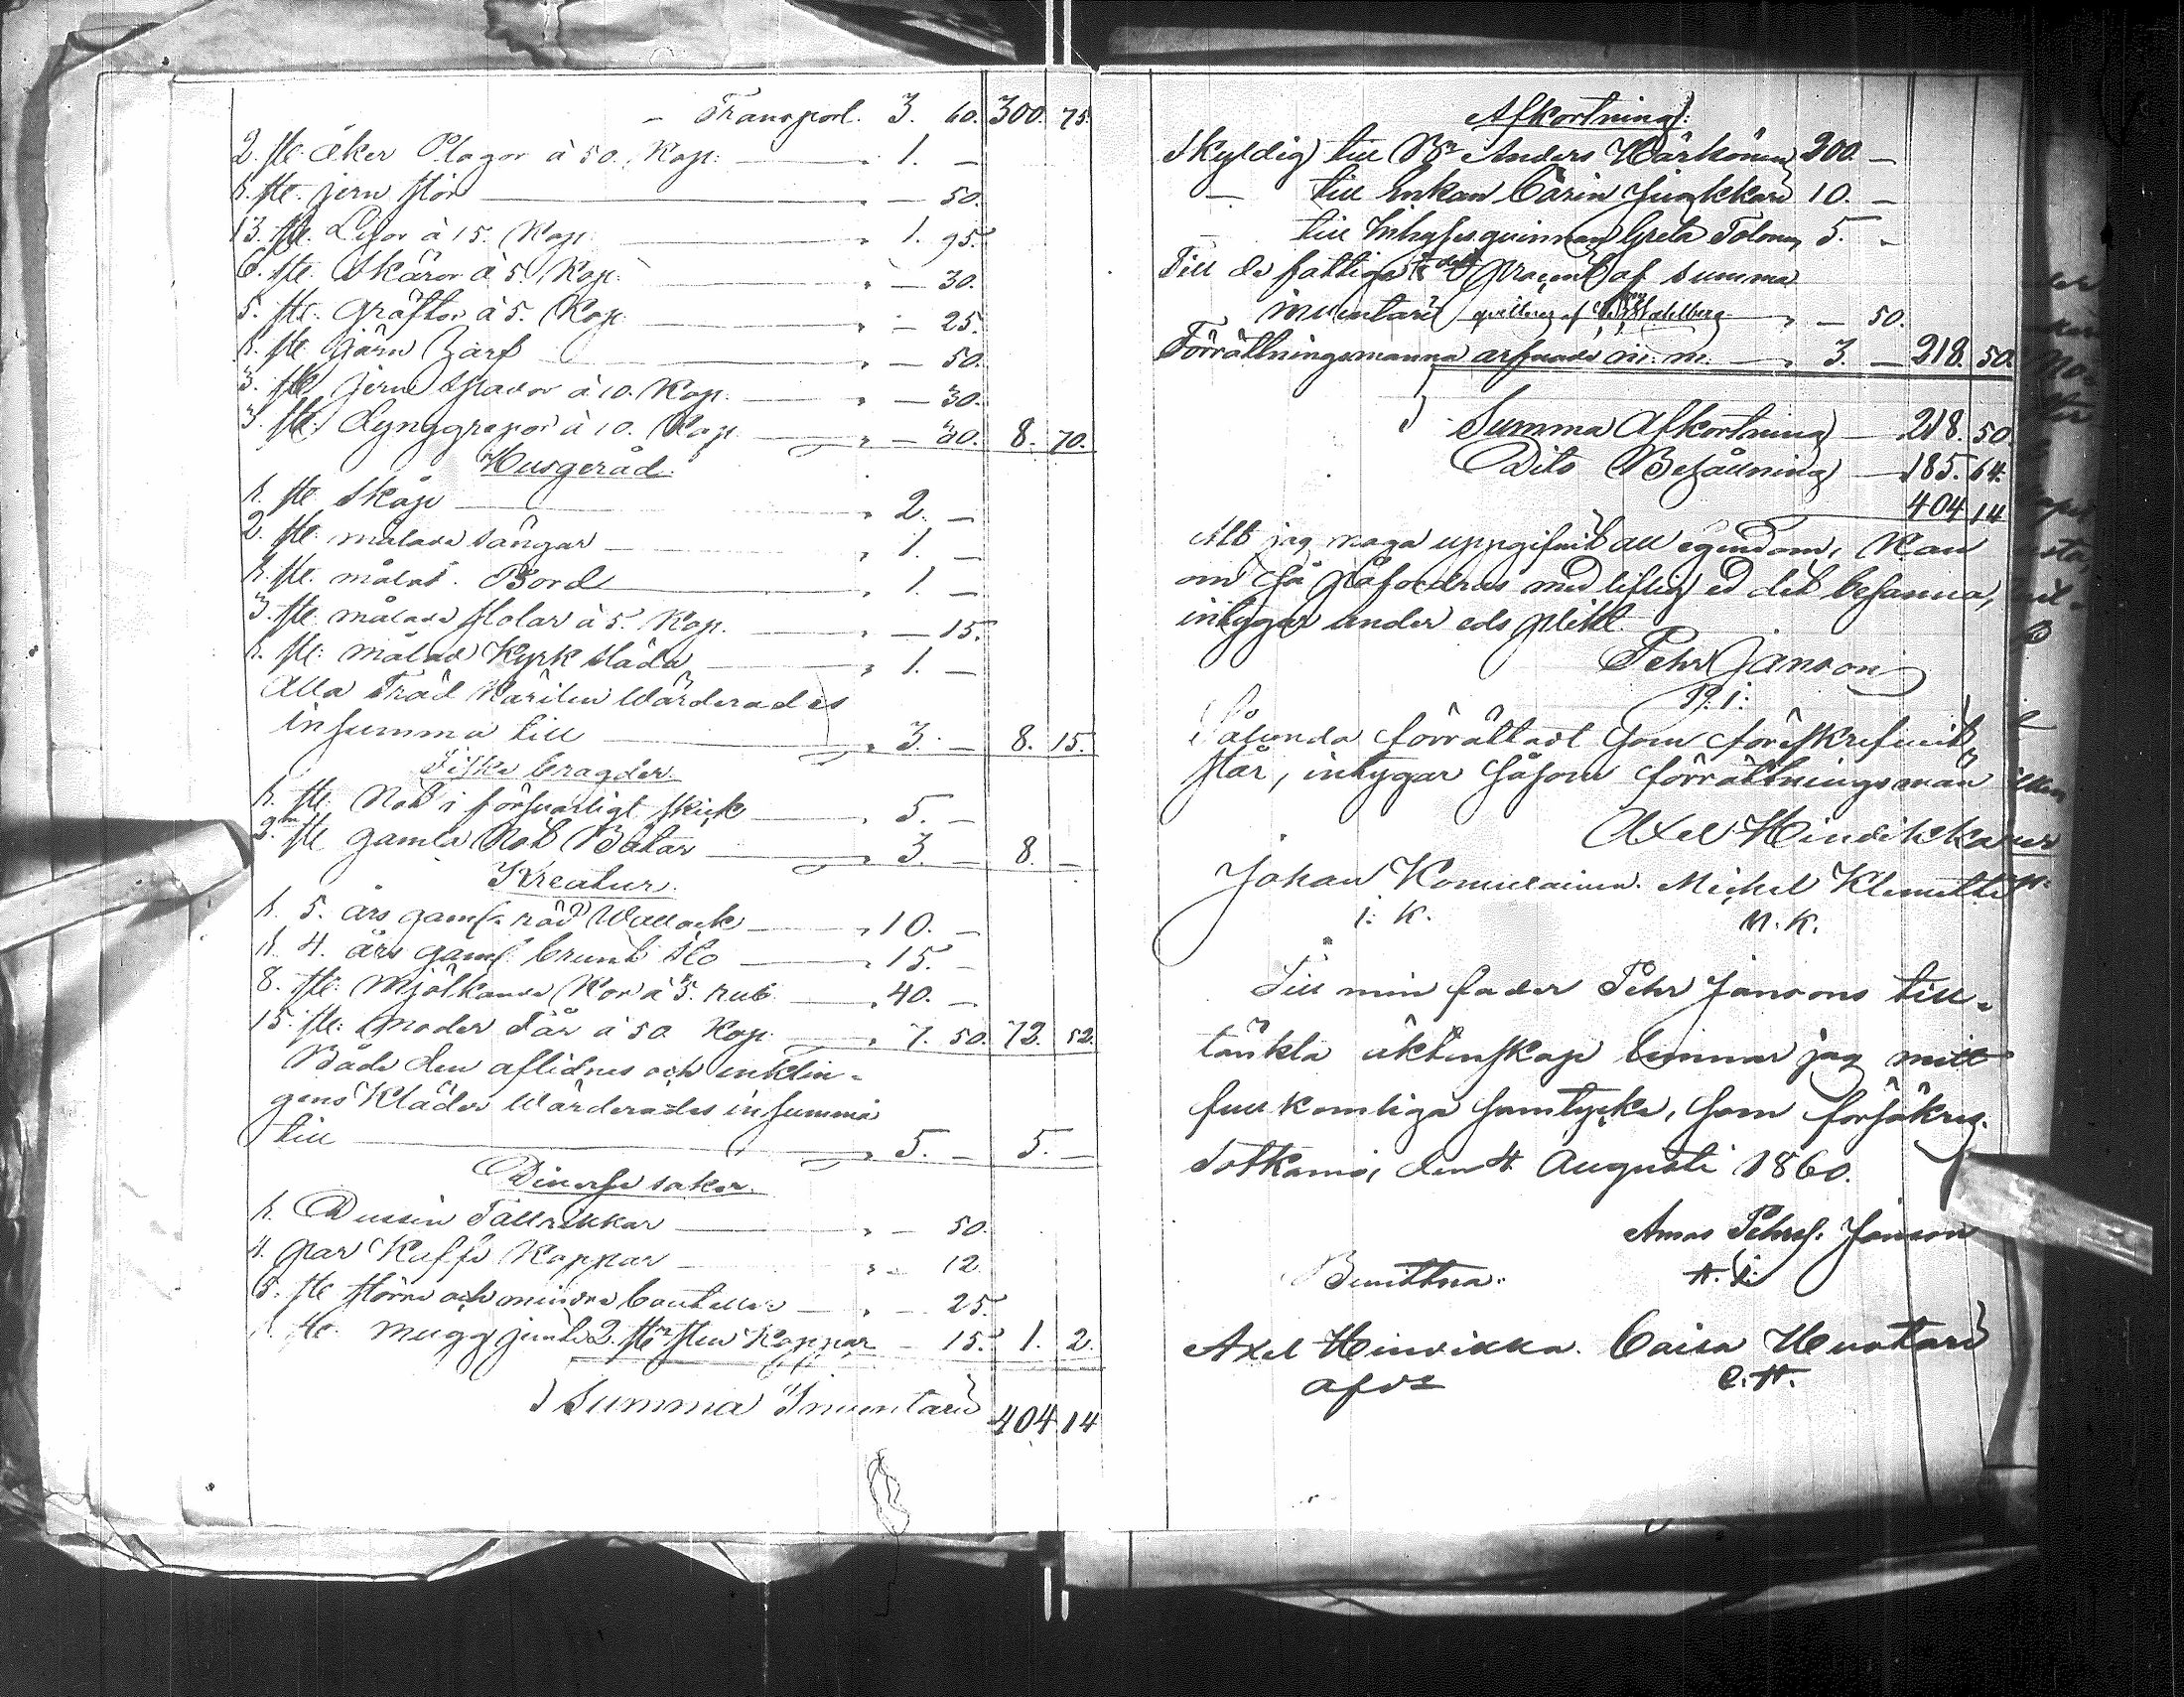 Transport. 3. 60. 300. 75.
2. st: åker Plogar à 50. Kop: 1. —
1. st. jern stör — 50.
13. st. Lijor à 15. Kop. 1. 95.
6. st. Skäror à 5. Kop: — 30.
5. st. gräftor à 5. Kop. — 25.
1. st. järn Harf — 50.
3. st. jern spador à 10. Kop. — 30.
3. st. dynggrepor à 10. Kop. — 30. 8. 70.
Husgeråd.
1. st. skåp 2. —
2. st. målade sängar 1. —
1. st. målat Bord 1. —
3. st. målade stolar à 5. Kop. — 15.
1. st: målad Kyrk släda 1. —
Alla Träd Kärilen Wärderades
in summa till 3. — 8. 15.
Fiske bragder.
1. st. Not i försvarligt skick 5. —
2ne st gamla Not Båtar 3. — 8. —
Kreatur.
1. 5. års gaml. röd Wallack 10. —
1. 4. års gaml. brunt Sto 15. —
8. st. Mjölkande Kor à 5. rub. 40. —
15. st: moder Får à 50 Kop. 7. 50. 72. 52.
Både den aflidnes och enklin-
gens Kläder Wärderades in summa
till 5. — 5. —
Diverse saker.
1. Dussin Tallrikkar — 50.
4. par Kaffe Koppar — 12.
5. st större och mindre bouteller — 25.
1. st. mugg jemte 2. st. sten Koppar — 15. 1. 2.
Summa Inventarii 404. 14
Afkortning:
Skyldig till Bn Anders Härkönen 200. —
— till Enkan Carin Junkkari 10. —
— till Inhyses qvinnan Greta Tolonen 5. —
Till de fattiga procent af summa
inventarii qvitteras af — 50.
Förrättningsmanna arfvade m. m. 3. — 218. 50.
Summa Afkortning 218. 50
Dito Behållning 185. 64.
404. 14
Att jag noga uppgifvit all egendom, Kan
om så påfordras med liflig ed det besanna,
intygar under eds plikt.
Pehr Janson
P. J.
Sålunda förrättadt som föreskrifvit
står, intygar såsom förrättningsmän
Axel Heindikkainen
Johan Komulainen. Michel Klemetti
J. K. M. K.
Till min fader Pehr Jansons till-
tänkta äktenskap lemnar jag mitt
fullkomliga samtycke, som försäkras.
Sotkamo, den 4. Augusti 1860.
Amos Pehrs. Janson
Bevittna: A. J.
Axel Heindikka. Caisa Huotari
C. H.